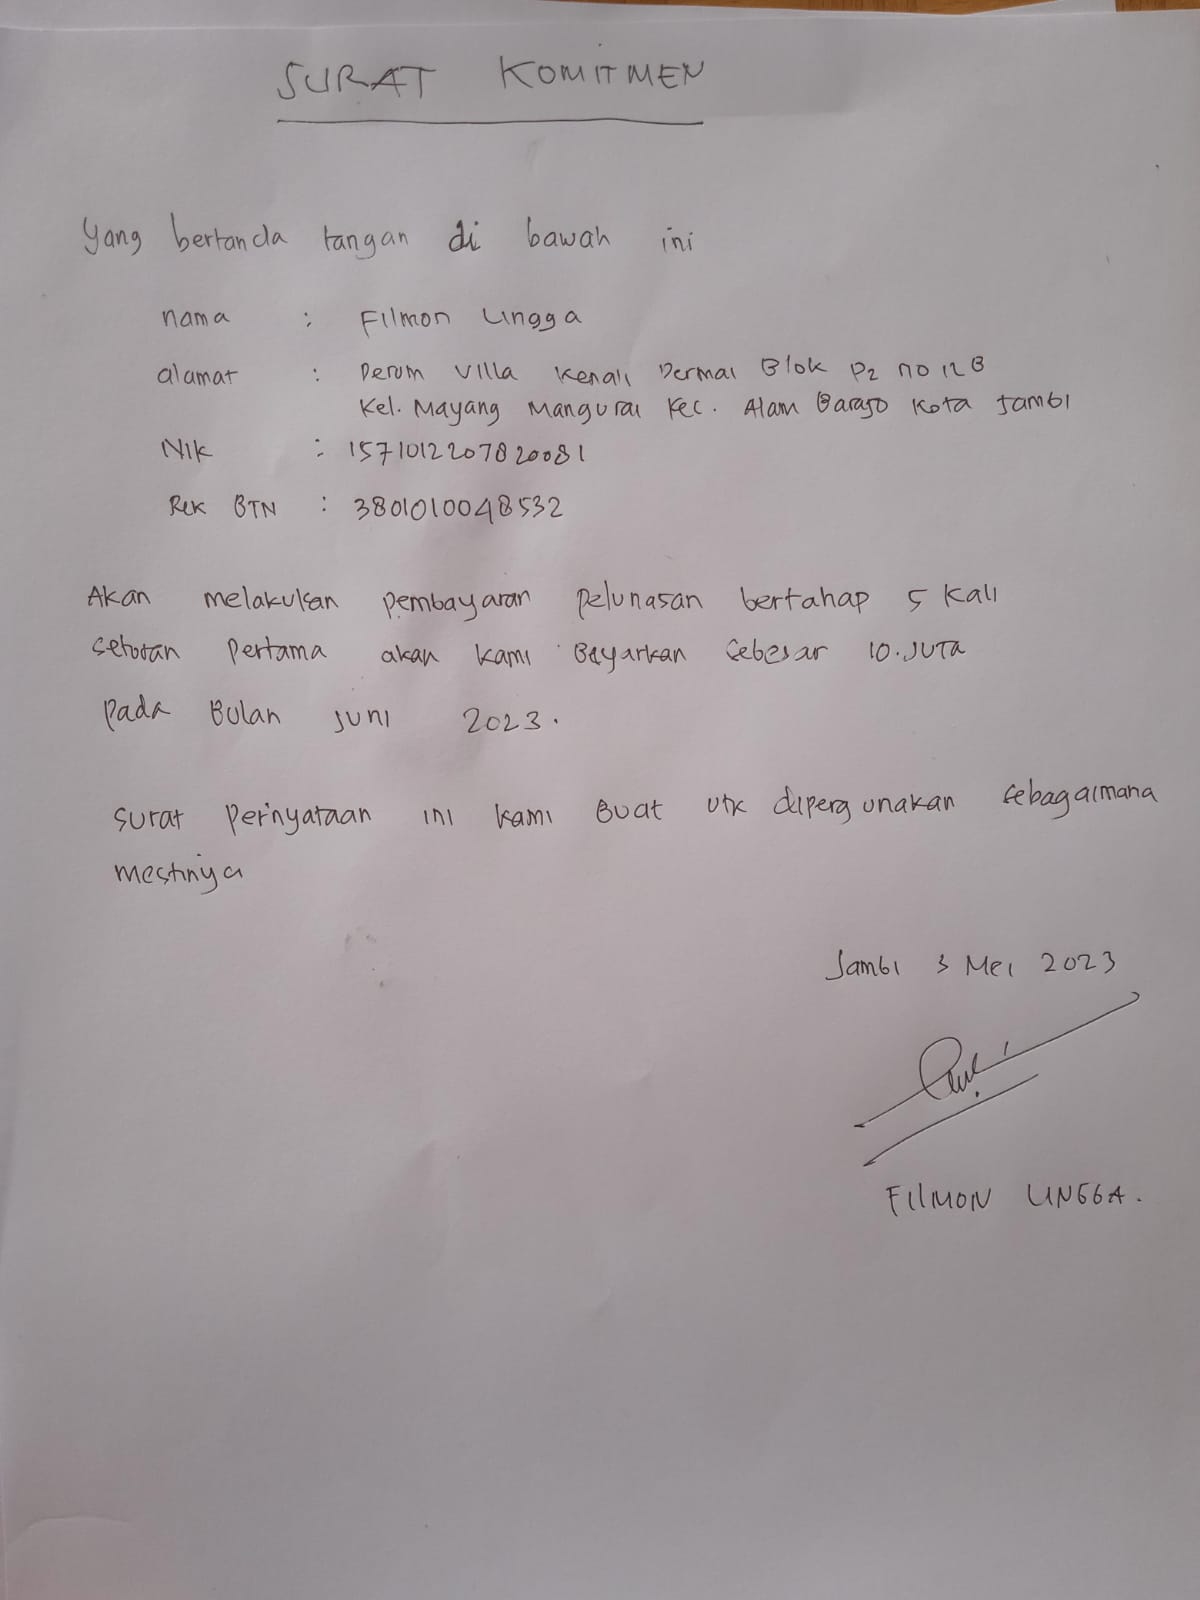 SURAT KOMITMEN
Yang bertanda tangan di bawah ini
nama : Filmon Lingga
alamat : Perum Villa Kenali Permai Blok P2 no 12 B
Kel. Mayang Mangurai Kec. Alam Barajo Kota Jambi
Nik : 1571012207820081
Rek BTN : 3801010048532
Akan melakukan pembayaran pelunasan bertahap 5 kali
setoran pertama akan kami Bayarkan sebesar 10.JUTA
pada Bulan Juni 2023.
surat pernyataan ini kami Buat utk dipergunakan sebagaimana
mestinya
Jambi 3 Mei 2023
FILMON LINGGA.